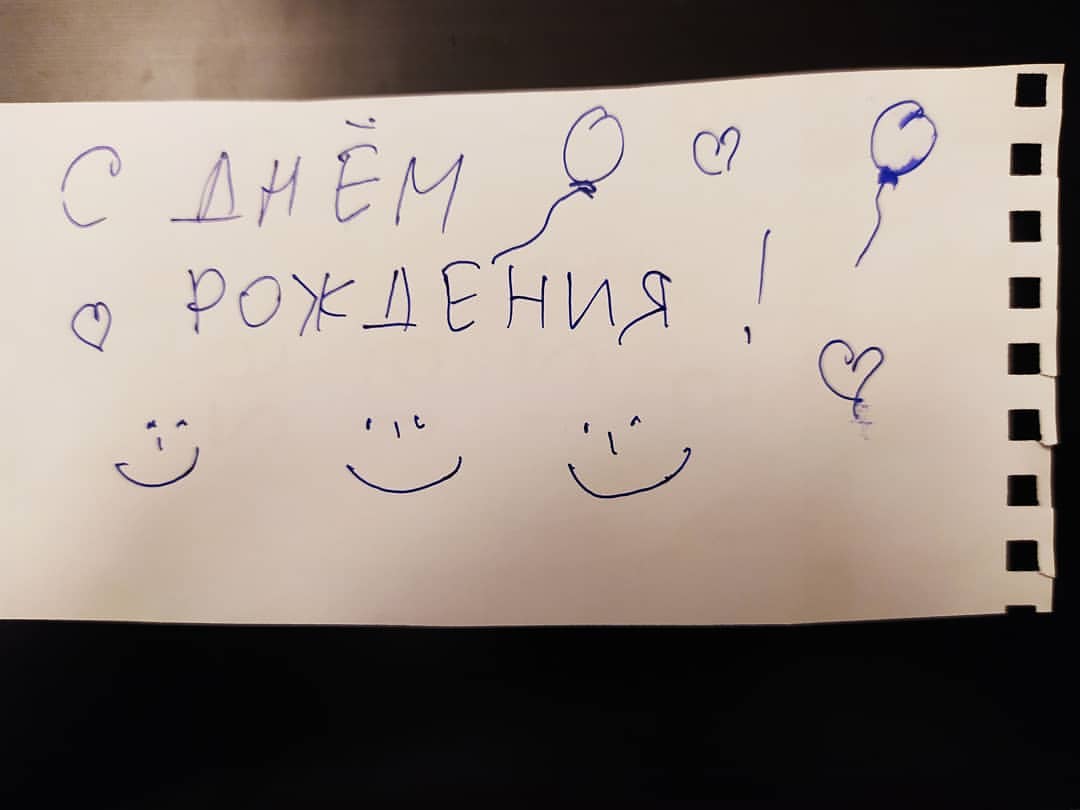 С ДНЁМ
РОЖДЕНИЯ!